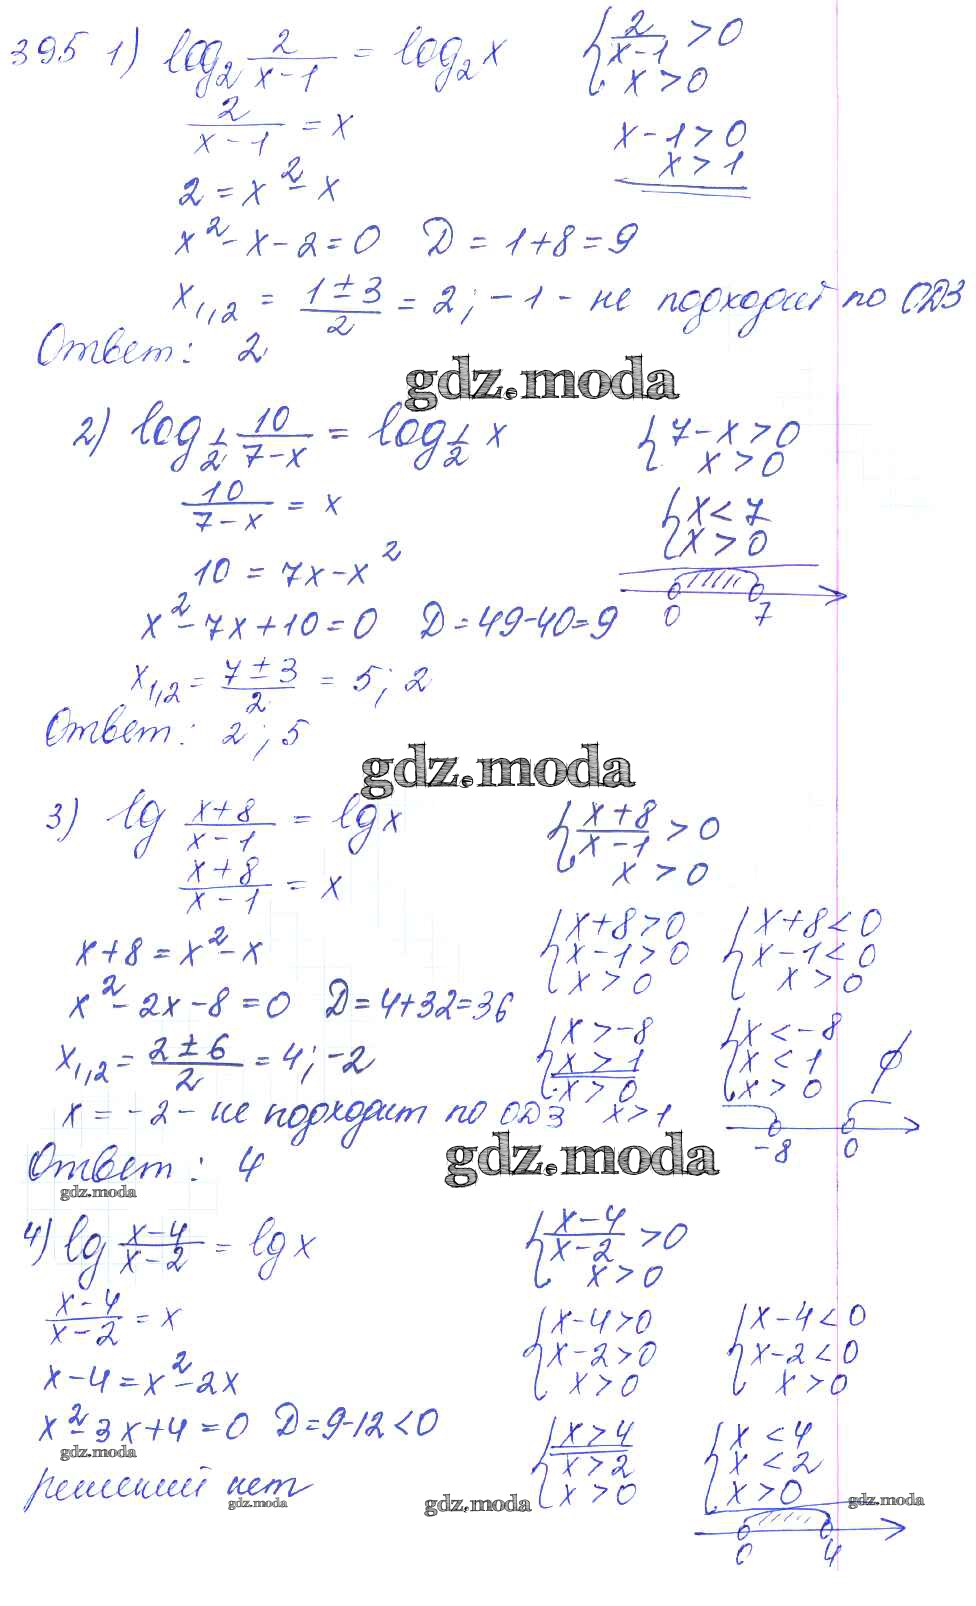 395 1) log₂ 2/(x-1) = log₂ x { 2/(x-1) > 0
x > 0
2/(x-1) = x x-1 > 0
x > 1
2 = x² - x
x² - x - 2 = 0 D = 1+8 = 9
x₁,₂ = (1 ± 3)/2 = 2; -1 - не подходит по ОДЗ
Ответ: 2
gdz.moda
2) log₁/₂ 10/(7-x) = log₁/₂ x { 7-x > 0
x > 0
10/(7-x) = x { x < 7
x > 0
10 = 7x - x²
0 7
x² - 7x + 10 = 0 D = 49-40 = 9
x₁,₂ = (7 ± 3)/2 = 5; 2
Ответ: 2; 5
gdz.moda
3) lg (x+8)/(x-1) = lg x { (x+8)/(x-1) > 0
x > 0
(x+8)/(x-1) = x
{ x+8 > 0 { x+8 < 0
x+8 = x² - x x-1 > 0 x-1 < 0
x > 0 x > 0
x² - 2x - 8 = 0 D = 4+32 = 36
{ x > -8 { x < -8
x₁,₂ = (2 ± 6)/2 = 4; -2 x > 1 x < 1 ∅
x > 0 x > 0
x = -2 - не подходит по ОДЗ x > 1
-8 0
Ответ: 4
gdz.moda
gdz.moda
4) lg (x-4)/(x-2) = lg x { (x-4)/(x-2) > 0
x > 0
(x-4)/(x-2) = x { x-4 > 0 { x-4 < 0
x-2 > 0 x-2 < 0
x-4 = x² - 2x x > 0 x > 0
x² - 3x + 4 = 0 D = 9-12 < 0 { x > 4 { x < 4
gdz.moda x > 2 x < 2
решений нет x > 0 x > 0
gdz.moda gdz.moda gdz.moda
0 4